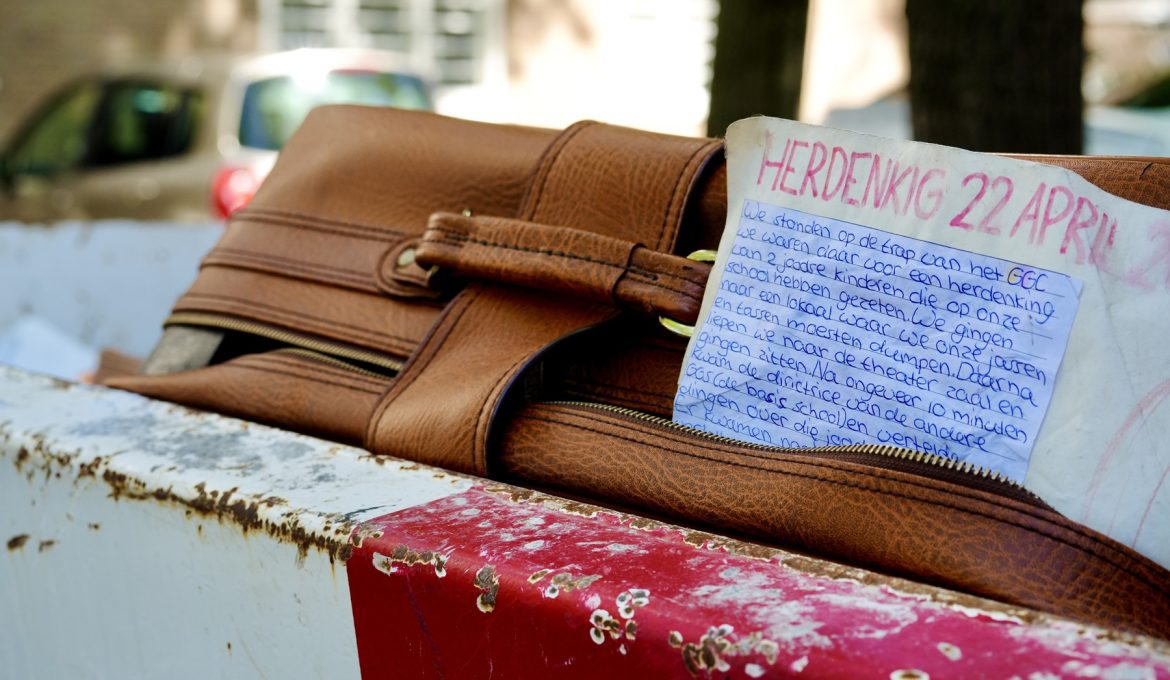 HERDENKIG 22 APRIL 2
We stonden op de trap van het GGC
we waren daar voor een herdenking
van 2 joodse kinderen die op onze
school hebben gezeten. We gingen
naar een lokaal waar we onze jassen
en tassen moesten dumpen. Daarna
liepen we naar de theater zaal en
gingen zitten. Na ongeveer 10 minuten
kwam de dirictrice van de andere
Gas (de basis school) en vertelde
dingen over die
kwamen